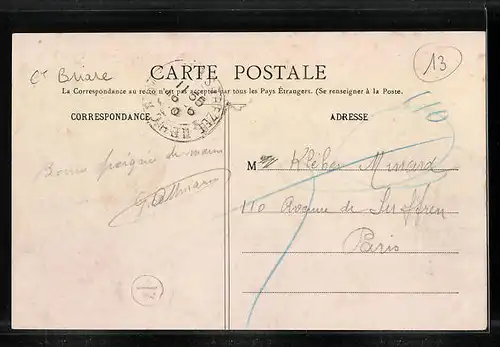 Ct Briare
CARTE POSTALE
13
La Correspondance au recto n'est pas acceptée par tous les Pays Étrangers. (Se renseigner à la Poste.
CORRESPONDANCE
ADRESSE
110
Bonne poignée de main
M Kléber Missard
110 Avenue de Suffren
Paris